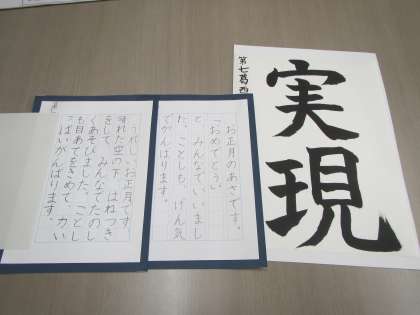 第七葛西
実現
お正月のあさです。
「おめでとう」
と、みんなでいいまし
た。ことしも、げん気
でがんばります。
うれしいお正月です。
晴れた空の下、はねつき
をして、みんなでたのし
くあそびました。ことし
も目あてをきめて、力い
っぱいがんばります。